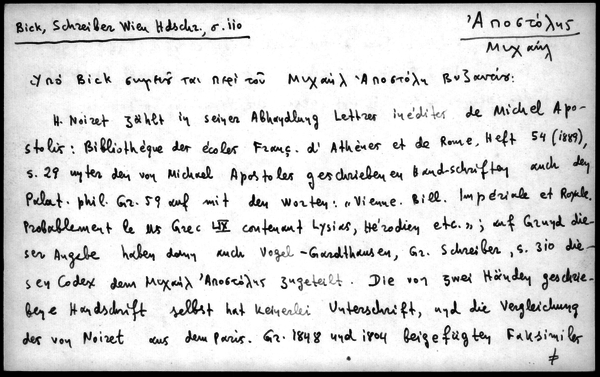 Bick, Schreiber Wien Hdschr., σ. 110
Ἀποστόλης
Μιχαήλ
Ὑπό Bick σημειοῦται περί τοῦ Μιχαήλ Ἀποστόλη Βυζαντίου:
H. Noiret zählt in seiner Abhandlung Lettres inédites de Michel Apo-
stolis: Bibliothéque des écoles Franç. d'Athènes et de Rome, Heft 54 (1889),
s. 29 unter den von Michael Apostoles geschriebenen Handschriften auch den
Palat. phil. Gr. 59 auf mit den Worten: „Vienne. Bill. Impériale et Royale.
Probablement le ms Grec LIX contenant Lysias, Hérodien etc."; auf Grund die-
ser Angabe haben dann auch Vogel-Gardthausen, Gr. Schreiber, s. 310 die-
sen Codex dem Μιχαήλ Ἀποστόλης zugeteilt. Die von zwei Händen geschrie-
bene Handschrift selbst hat keinerlei Unterschrift, und die Vergleichung
der von Noiret aus dem Paris. Gr. 1848 und 1804 beigefügten Faksimiles